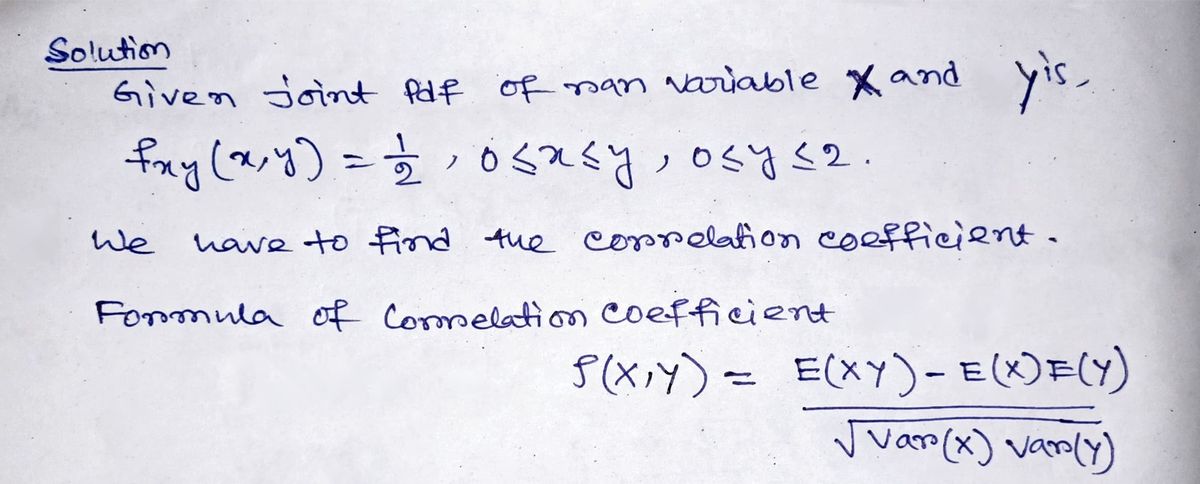 Solution
Given joint Pdf of ran variable X and Y is,
fxy(x,y) = 1/2 , 0≤x≤y , 0≤y≤2.
We have to find the correlation coefficient.
Formula of Correlation Coefficient
ρ(X,Y) = E(XY) - E(X)E(Y)
√Var(X) Var(Y)